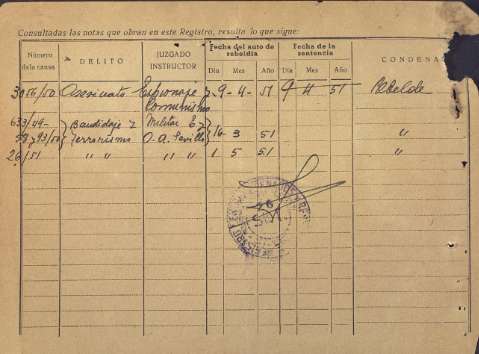 Consultadas las notas que obran en este Registro, resulta lo que sigue:
Número de la causa DELITO JUZGADO INSTRUCTOR Fecha del auto de rebeldía Fecha de la sentencia CONDENA
Día Mes Año Día Mes Año
3056/50 Asesinato Espionaje y 9-4-51 9 4 51 Rebelde
Comunismo
633/49 Bandidaje y Militar E.
93/50 Terrorismo O.A. Sevilla 16 3 51 "
26/51 " " " " 1 5 51 "